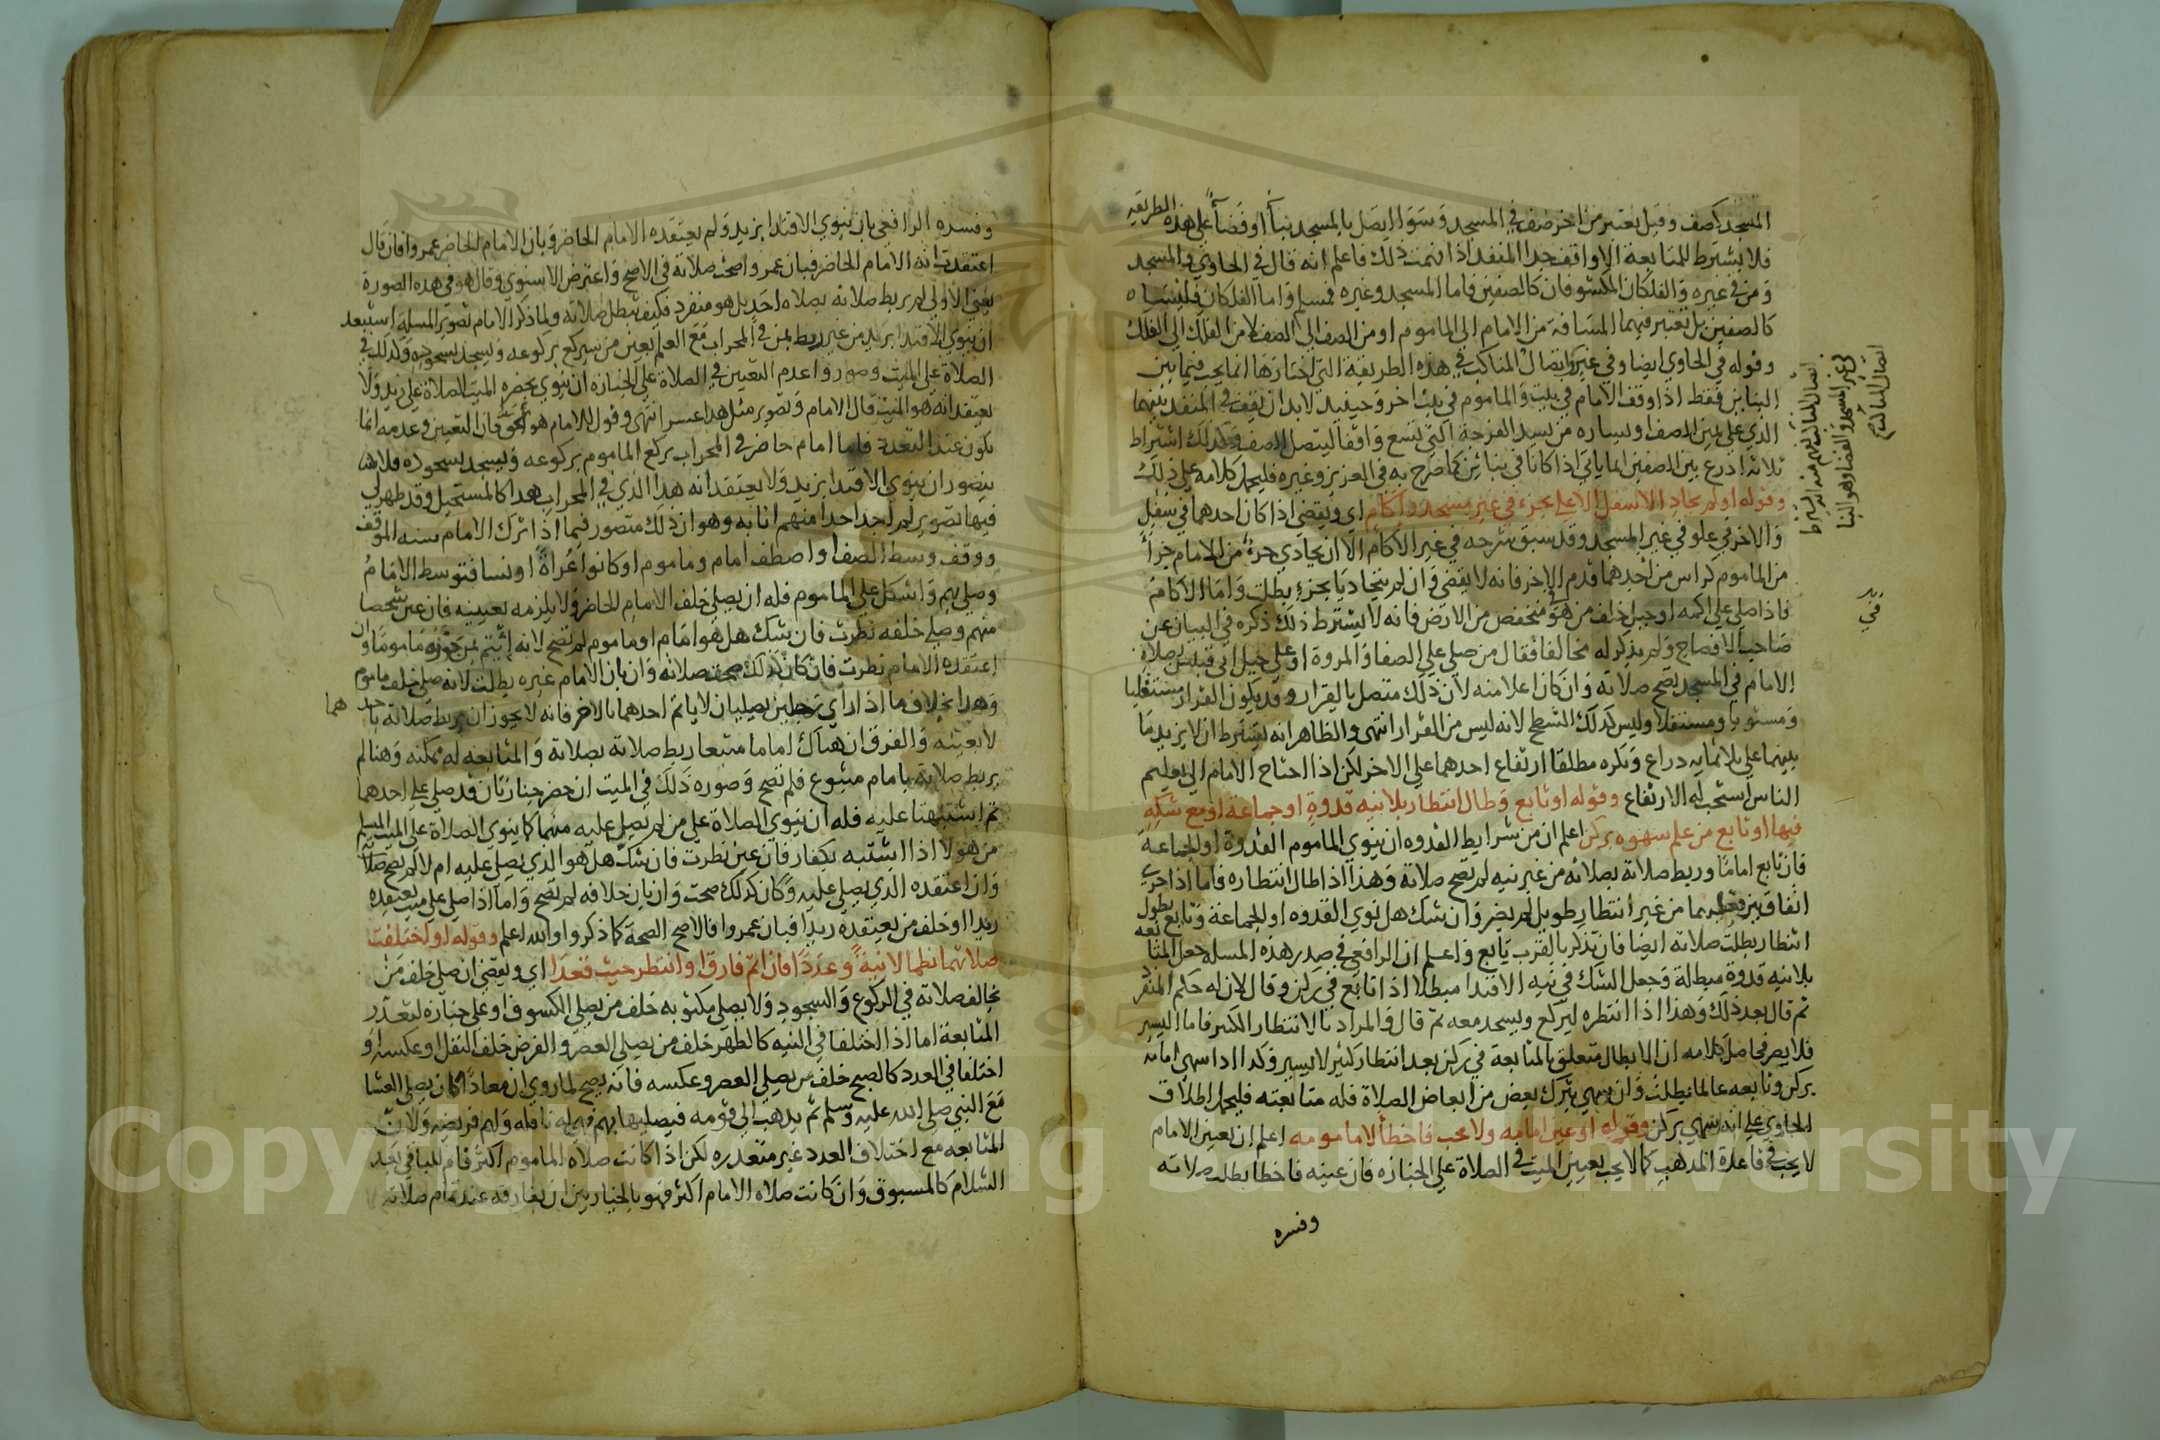 المسجد كصف وقيل يعتبر من اخر صف في المسجد وسوا ايصل بالمسجد بنا او فضا على هذه الطريقه
فلا يشترط للمتابعة الاواقف حدا المنفد اذا تمت ذلك فاعلم انه قال في الحاوي في المسجد
ومن في غيره والفلكان المكشوفان كالصفين فاما المسجد وغيره فمسلم واما الفلكان فليسا
كالصفين بل تعتبر فيهما المسافة من الامام الى الماموم او من الصف الى الصف لا من الفلك الى الفلك
وقوله في الحاوي ايضا وفي غيره اتصال المناكب في هذه الطريقة التي اختارها انما يجب فيما بين
البنايين فقط اذا وقف الامام في بيت والماموم في بيت اخر وحينيد لابد ان يقف في المنفد بينهما
الذي على يمين الصف او يساره من يسد الفرجة التي تسع واقفا ليتصل الصف وكذلك اشتراط
ثلاثة اذرع بين الصفين انما ياتي اذا كانا في بنائين كما صرح به في العزيز وغيره فليحمل كلامه على ذلك
وقوله او لم يحاد الاسفل الاعلى بجزء في غير مسجد واكام اي ويقضي اذا كان احدهما في سفل
والاخر في علو في غير المسجد وقد سبق شرحه في غير الاكام الا ان يحادي جزء من الامام جزأ
من الماموم كراس من احدهما قدم الاخر فانه لا يقضي وان لم يتحاديا بجزء بطلت واما الاكام
فاذا صلى على اكمه او جبل خلف من هو منخفض من الارض فانه لا يشترط ذلك ذكره في البيان عن
صاحب الافصاح ولم يذكر له مخالفا فقال من صلى على الصفا والمروة او على جبل ابي قبيس بصلاة
الامام في المسجد تصح صلاته وان كان اعلا منه لان ذلك متصل بالقرار وقد يكون القرار مستعليا
ومستويا ومستفلا وليس كذلك السطح لانه ليس من القرار انتهى والظاهر انه يشترط ان لا يزيد ما
بينهما على ثلاثمايه دراع ويكره مطلقا ارتفاع احدهما على الاخر لكن اذا احتاج الامام الى تعليم
الناس استحب له الارتفاع وقوله او تابع وطال انتظار بلا نيه قدوة او جماعة او مع شكه
فيها او تابع من علم سهوه بركن اعلم ان من شرايط القدوه ان ينوي الماموم القدوة او الجماعة
فان تابع اماما وربط صلاته بصلاته من غير نيه لم تصح صلاته وهذا اذا طال انتظاره فاما اذا جرى
اتفاق بين فعلهما من غير انتظار طويل لم يضر وان شك هل نوى القدوه او الجماعة وتابع بطول
انتظار بطلت صلاته ايضا فان تذكر بالقرب يتابع واعلم ان الرافعي في صدر هذه المسله جعل المتابعه
بلا نيه قدوة مبطلة وجعل الشك في نيه الاقتدا مبطلا اذا تابع في ركن وقال لان له حكم المنفرد
ثم قال بعد ذلك وهذا اذا انتظره ليركع ويسجد معه ثم قال والمراد بالانتظار الكثير فاما اليسير
فلا يضر فحاصل كلامه ان الابطال متعلق بالمتابعة في ركن بعد انتظار كثير لا يسير وكدا اذا سهى امامه
بركن وتابعه عالما بطلت وان سهى بترك بعض من ابعاض الصلاة فله متابعته فليحمل اطلاق
الحاوي على انه سهى بركن وقوله او عين امامه ولا يجب فاخطأ لا مامومه اعلم ان تعيين الامام
لا يجب في قاعدة المذهب كما لا يجب تعيين الميت في الصلاة على الجنازه فان عينه فاخطا بطلت صلاته
وفسره
اتصال المناكب
في غير المسجد والفضا وهو البنا
وفسره الرافعي بان ينوي الاقتدا بزيد ولم يعتقده الامام الحاضر وبان الامام الحاضر عمروا فان قال
اعتقدت انه الامام الحاضر فبان عمروا صحت صلاته في الاصح واعترض الاسنوي وقال هو في هذه الصورة
يعني الاولى لم يربط صلاته بصلاه احد بل هو منفرد فكيف تبطل صلاته ولما ذكر الامام تصوير المسلة استبعد
ان ينوي الاقتدا بزيد من غير ربط بمن في المحراب مع العلم بعين من سيركع بركوعه ويسجد بسجوده وكذلك في
الصلاة على الميت وصوروا عدم التعيين في الصلاة على الجنازه ان ينوي بحضره الميت الصلاة على زيد ولا
يعتقد انه هو الميت قال الامام وتصوير مثل هذا عسر انتهى وقول الامام هو الحق فان التعيين وعدمه انما
يكون عند التعدد فاما امام حاضر في المحراب يركع الماموم بركوعه ويسجد بسجوده فلا
يتصور ان ينوي الاقتدا بزيد ولا يعتقد انه هذا الذي في المحراب هذا كالمستحيل وقد ظهر لي
فيها تصوير لم اجد احدا منهم اتا به وهو ان ذلك متصور فيما اذا ترك الامام سنه الموقف
ووقف وسط الصف او اصطف امام وماموم او كانوا عراة او نسا فتوسط الامام
وصلى بهم واشكل على الماموم فله ان يصلي خلف الامام الحاضر ولا يلزمه تعيينه فان عين شخصا
منهم وصلى خلفه نظرت فان شك هل هو امام او ماموم لم تصح لانه ائتم بمن جوزه ماموما وان
اعتقده الامام نظرت فان كان كذلك صحت صلاته وان بان الامام غيره بطلت لانه صلى خلف ماموم
وهذا بخلاف ما اذا راى رجلين يصليان لا ياتم احدهما بالاخر فانه لا يجوز ان يربط صلاته باحدهما
لا بعينه والفرق ان هناك اماما متبعا ربط صلاته بصلاته والمتابعه له ممكنه وهنا لم
يربط صلاته بامام متبوع فلم تصح وصوره ذلك في الميت ان حضر جنازتان قد صلى على احدهما
ثم اشتبهتا عليه فله ان ينوي الصلاة على من لم يصل عليه منهما كما ينوي الصلاة على الميت المسلم
من هولا اذا اشتبه بكفار فان عين نظرت فان شك هل هو الذي يصلي عليه ام لا لم تصح صلاته
وان اعتقده الذي يصلي عليه وكان كذلك صحت وان بان خلافه لم تصح واما اذا صلى على ميت يعتقده
زيدا او خلف من يعتقده زيدا فبان عمروا فالاصح الصحة كما ذكروا والله اعلم وقوله او اختلفت
صلاتهما نظما لا نية وعددا فان اتم فارق او انتظر حيث قعدا اي ويقضي ان صلى خلف من
تخالف صلاته في الركوع والسجود ولا يصلي مكتوبه خلف من يصلي الكسوف او على جنازه لتعذر
المتابعة اما اذا اختلفا في النيه كالظهر خلف من يصلي العصر والفرض خلف النفل او عكسه او
اختلفا في العدد كالصبح خلف من يصلي العصر وعكسه فانه يصح لما روي ان معاذا كان يصلي العشا
مع النبي صلى الله عليه وسلم ثم يذهب الى قومه فيصليها بهم فهي له نافله ولهم فريضه ولان
المتابعه مع اختلاف العدد غير متعذره لكن اذا كانت صلاة الماموم اكثر قام للباقي بعد
السلام كالمسبوق وان كانت صلاه الامام اكثر فهو بالخيار بين ان يفارقه عند تمام صلاته
Copyright © King Saud University